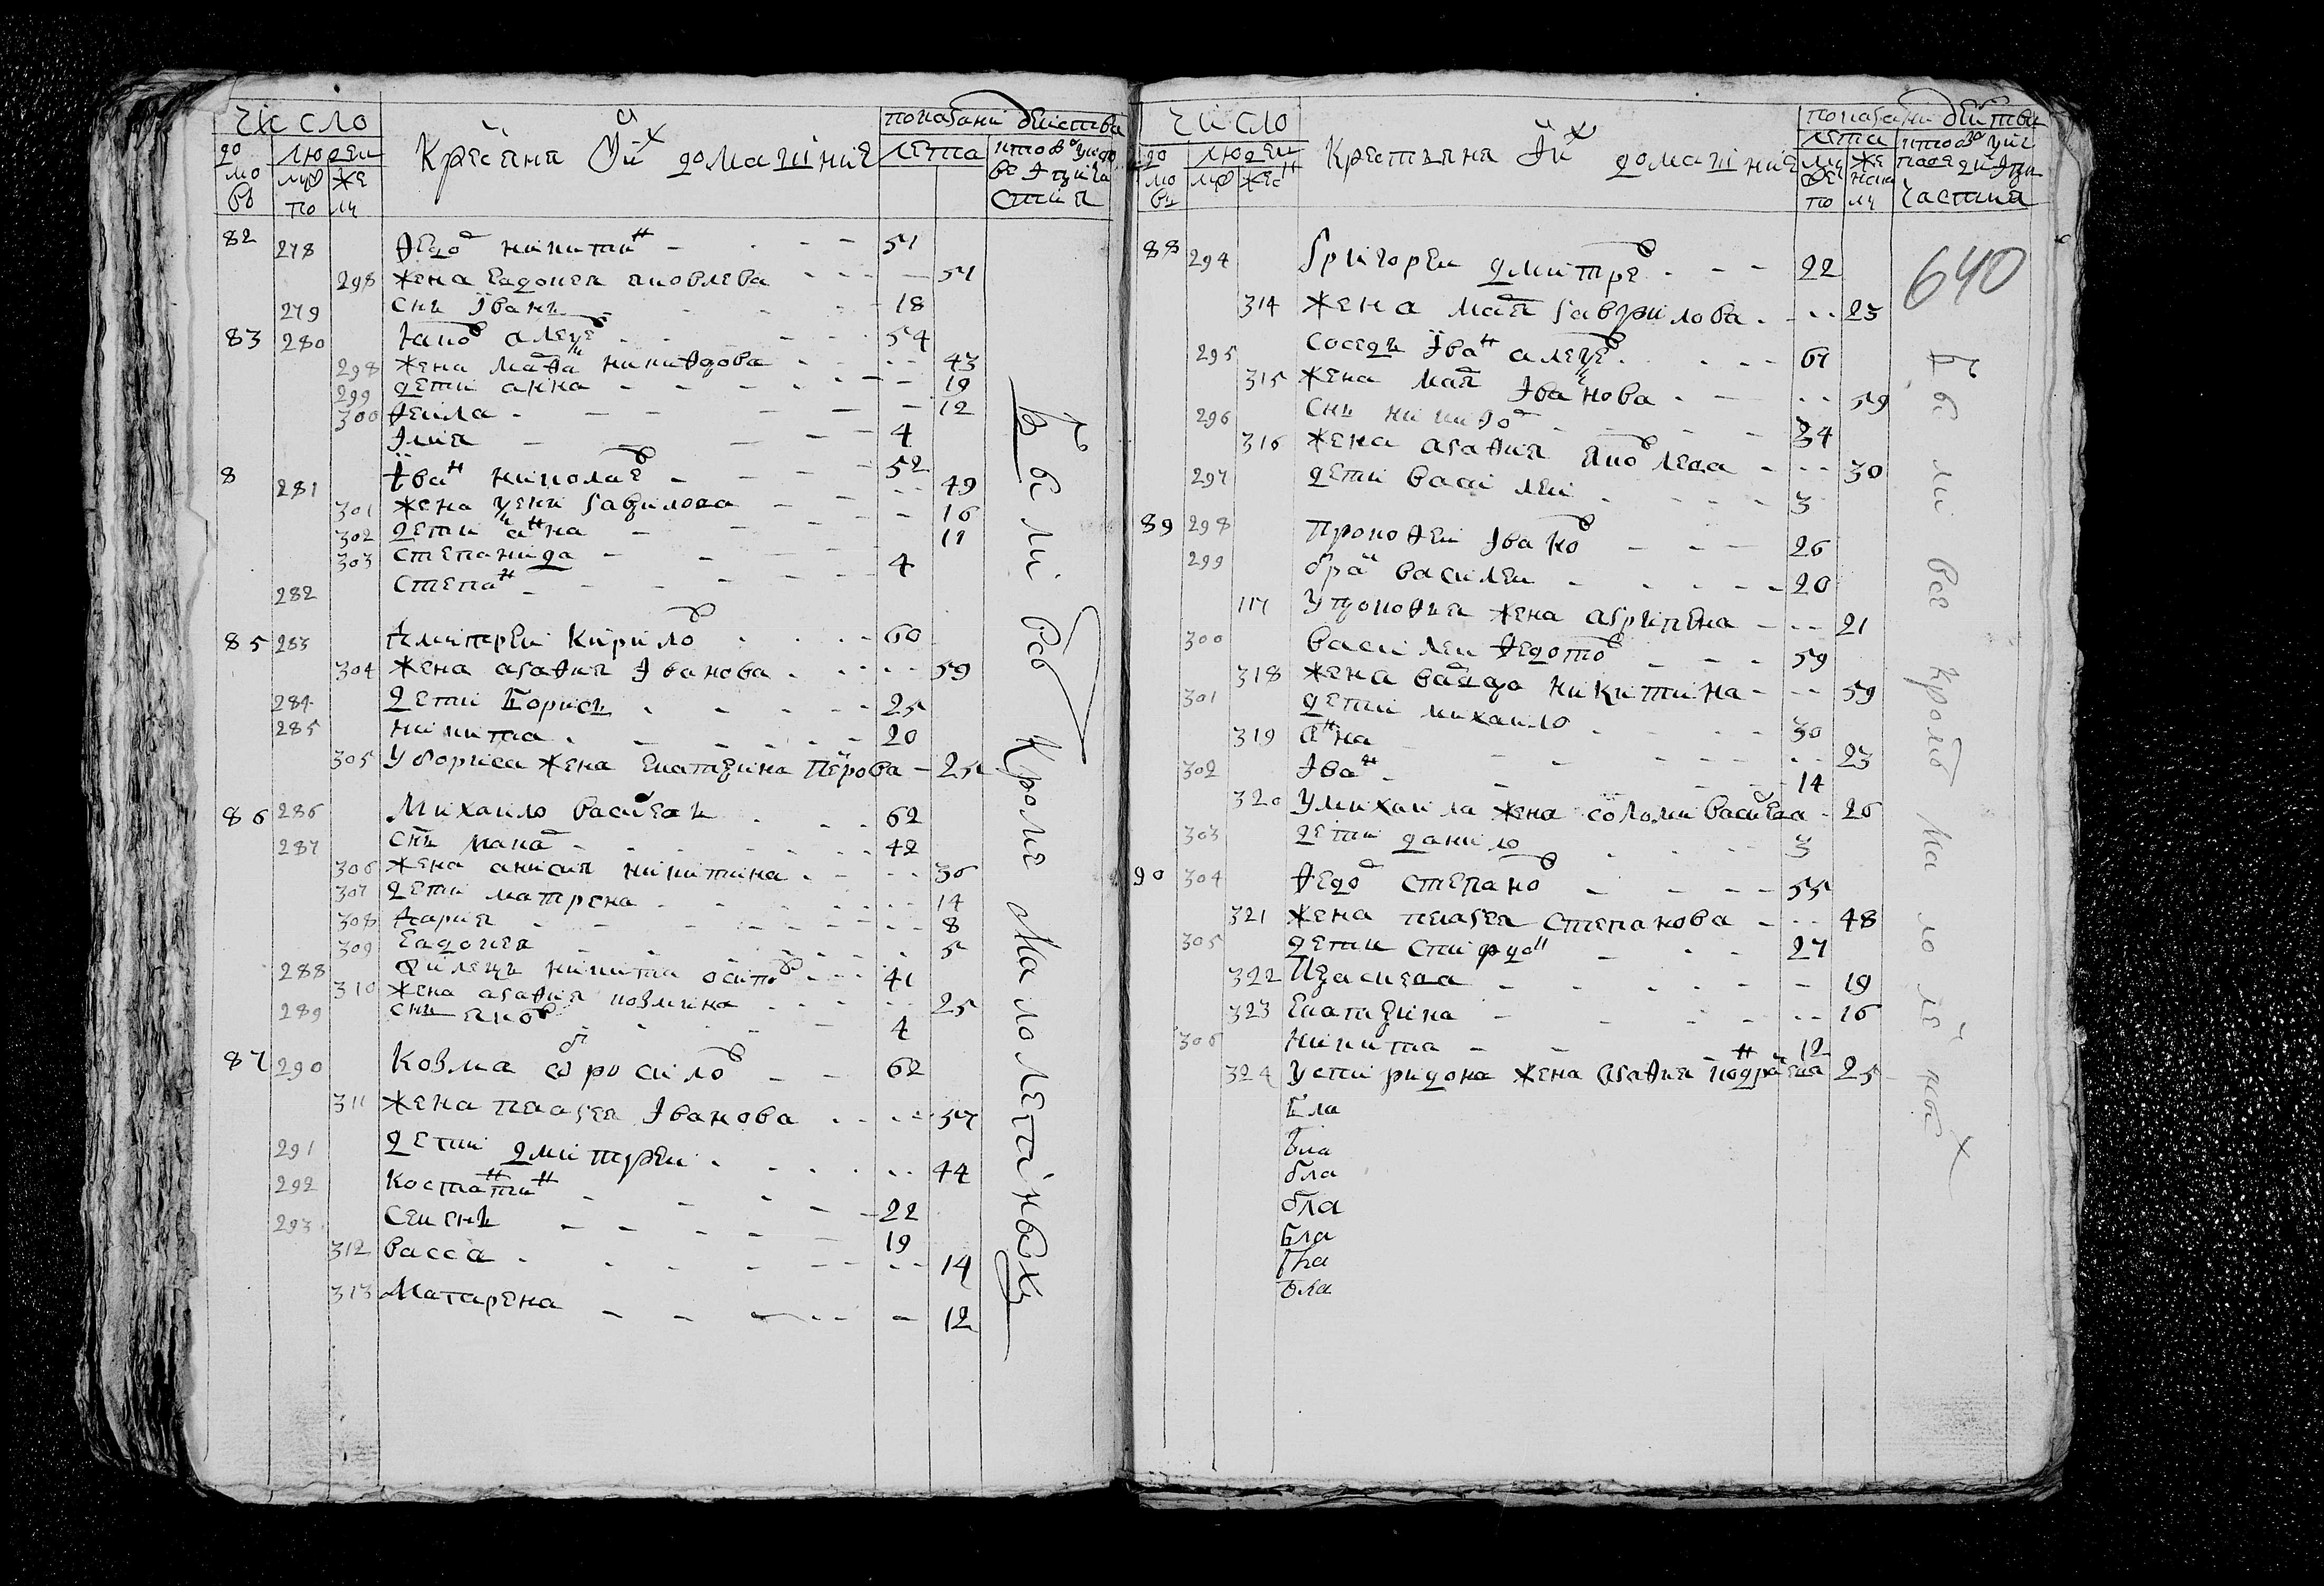 Число
Крестяня и их домашние
показани действа
до мовъ
людей
муж по
же лу
лета
кто во исповести
82 278 Федо никити 51
298 жена евдокея яковлева 51
279 снъ Иванъ 18
83 280 Яко алеѯе 54
298 жена мафа никифорова 43
299 дети анна 19
300 Фекла 12
Илия 4
8 281 Иван николае 52
301 жена гаврилова 49
302 дети анна 16
303 степанида 11
282 степан 4
85 283 Дмитрей Кирило 60
304 жена агафия Иванова 59
284 дети Борисъ 25
285 никита 20
305 У бориса жена екатерина Перова 25
86 286 Михаило василевъ 62
287 снъ 42
306 жена анисия никитина 36
307 дети матрена 14
308 дария 8
309 Евдокея 5
288 никита осипо 41
310 жена агафия козмина 25
289 снъ яков 4
87 290 Козма 62
311 жена пелагея Иванова 57
291 дети дмитрей 44
292 Костянтин 22
293 Семенъ 19
312 васса 14
313 Матарена 12
Были все Кроме Малолетныхъ
Число
Крестьяня и их домашние
показани действи
до мовъ
людей
муж
жес
лета
му ске по
же наск лу
640
88 294 Григорей дмитре 22
314 жена мафа гаврилова 23
295 соседъ Иван алеѯе 61
315 жена мафа Иванова 59
296 снъ никифо 34
316 жена агафия яковлева 30
297 дети василей 3
89 298 Прокофей Ивако 26
299 бра василей 20
317 У прокофья жена агрипена 21
300 василей федото 59
318 жена никитина 59
301 дети михаило 30
319 анна 23
302 Иван 14
320 У михаила жена соломи василева 26
303 дети данило 3
90 304 Федо степано 55
321 жена пелагея степанова 48
305 дети спиридон 27
322 Прасковя 19
323 Екатерина 16
306 никита 12
324 У спиридона жена агафия кодратева 25
Бла
бла
бла
бла
Бла
бла
бла
Были все кроме малолетных